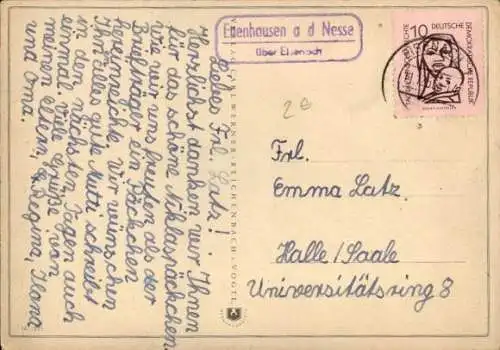 Liebes Frl. Latz!
Herzlichst danken wir Ihnen
für das schöne Niklaspäckchen.
wie wir uns freuten als der
Briefträger ein Päckchen
hereinreichte. Wir wünschen
Ihn alles gute. Mutti schreibt
in den nächsten Tagen auch
einmal. Viele Grüße von
meinen Eltern, Regina, Ilona
und Oma.
Ettenhausen a d Nesse
über Eisenach
KARL WERNER · REICHENBACH · VOGTL
10
DEUTSCHE
DEMOKRATISCHE REPUBLIK
2e
Frl.
Emma Latz.
Halle/Saale
Universitätsring 8